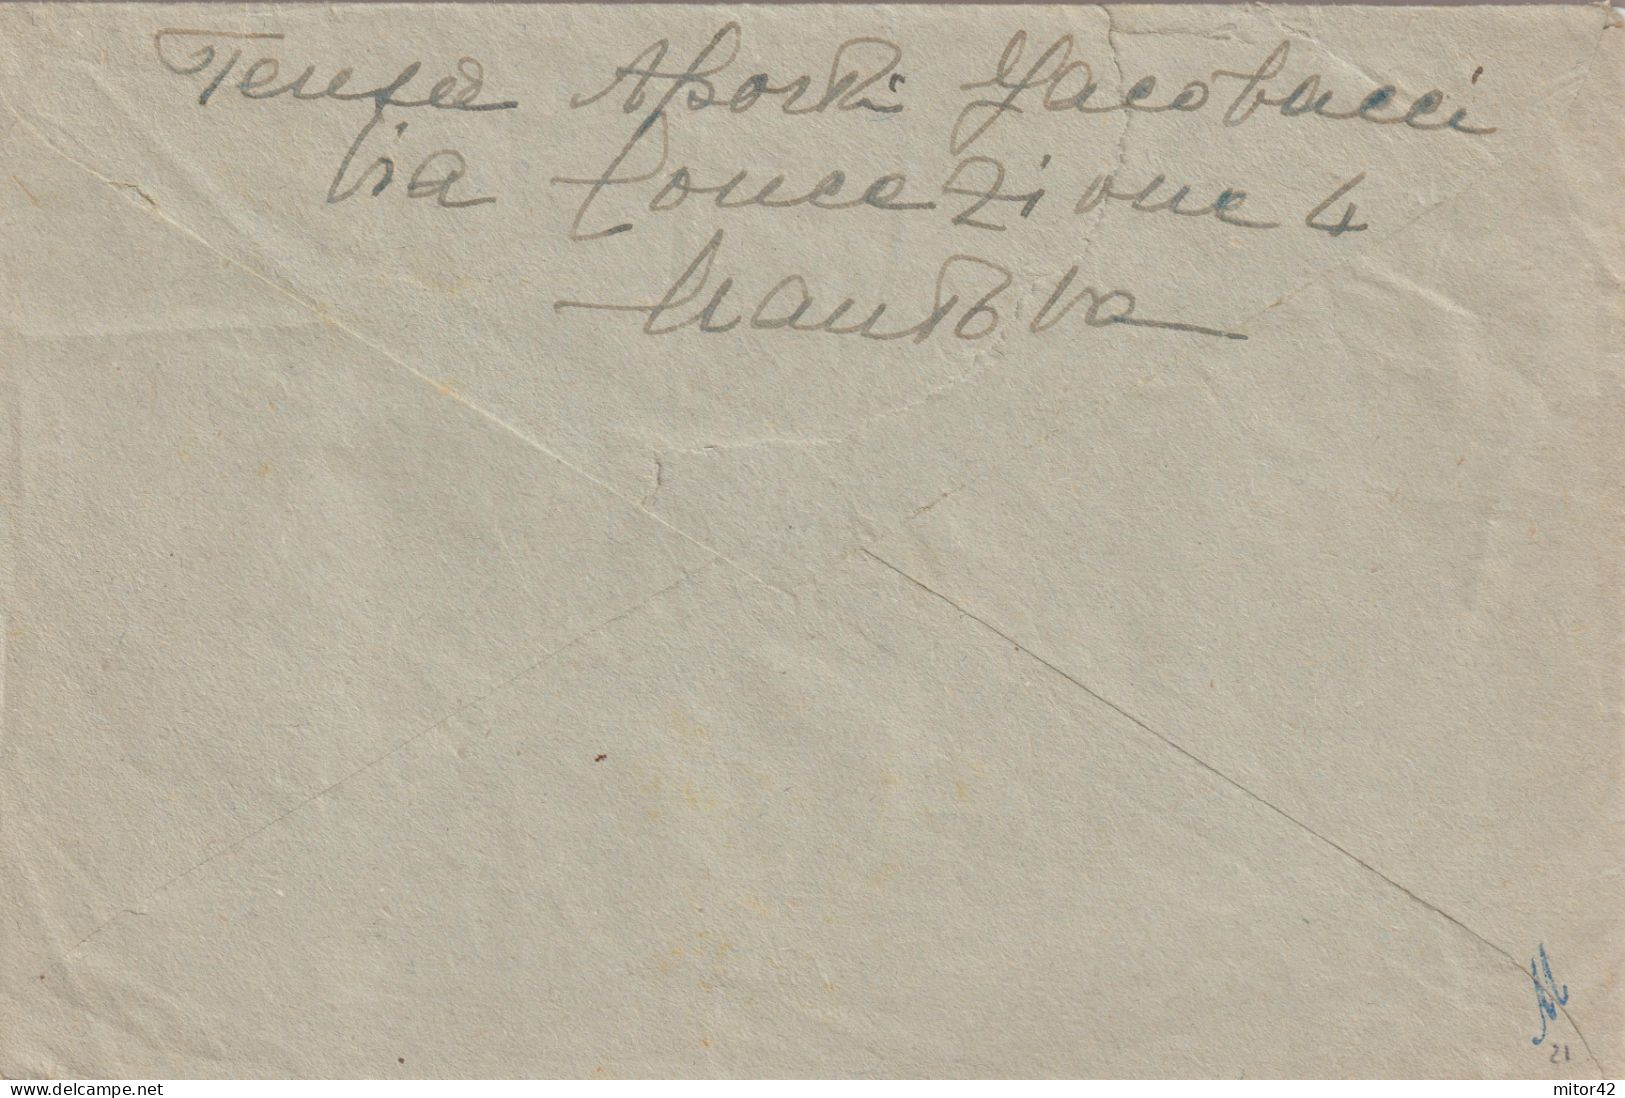 Aporti Jacobacci
Via Concezione 4
Mantova
M
21
delcampe.net
mitor42